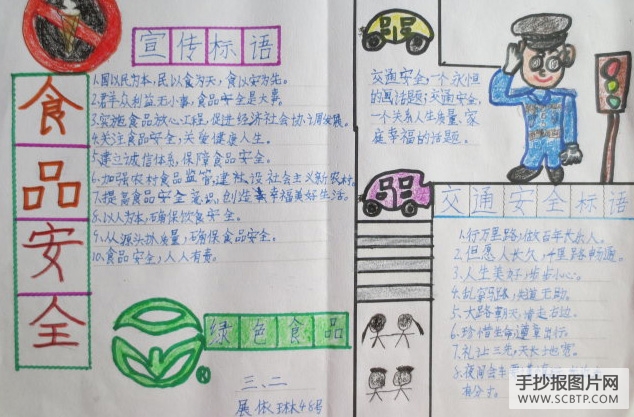 宣传标语
食品安全
1.国以民为本,民以食为天,食以安为先。
2.君子众利益无小事,食品安全是大事。
3.实施食品放心工程,促进经济社会协调发展。
4.关注食品安全,关爱健康人生。
5.建立诚信体系,保障食品安全。
6.加强农村食品监管,建设社会主义新农村。
7.提高食品安全意识,创造幸福美好生活。
8.以人为本,确保饮食安全。
9.从源头抓质量,确保食品安全。
10.食品安全,人人有责。
绿色食品
三、二
48号
交通安全,一个永恒
的话题;交通安全,
一个关系人生质量、家
庭幸福的话题。
交通安全标语
1.行万里路,做百年长乐人。
2.但愿人长久,千里路畅通。
3.人生美好,步步小心。
4.乱穿马路,失道无助。
5.大路朝天,请走右边。
6.珍惜生命,遵章
7.礼让三先,天长地宽。
8.夜间
手抄报图片网
WWW.SCBTP.COM